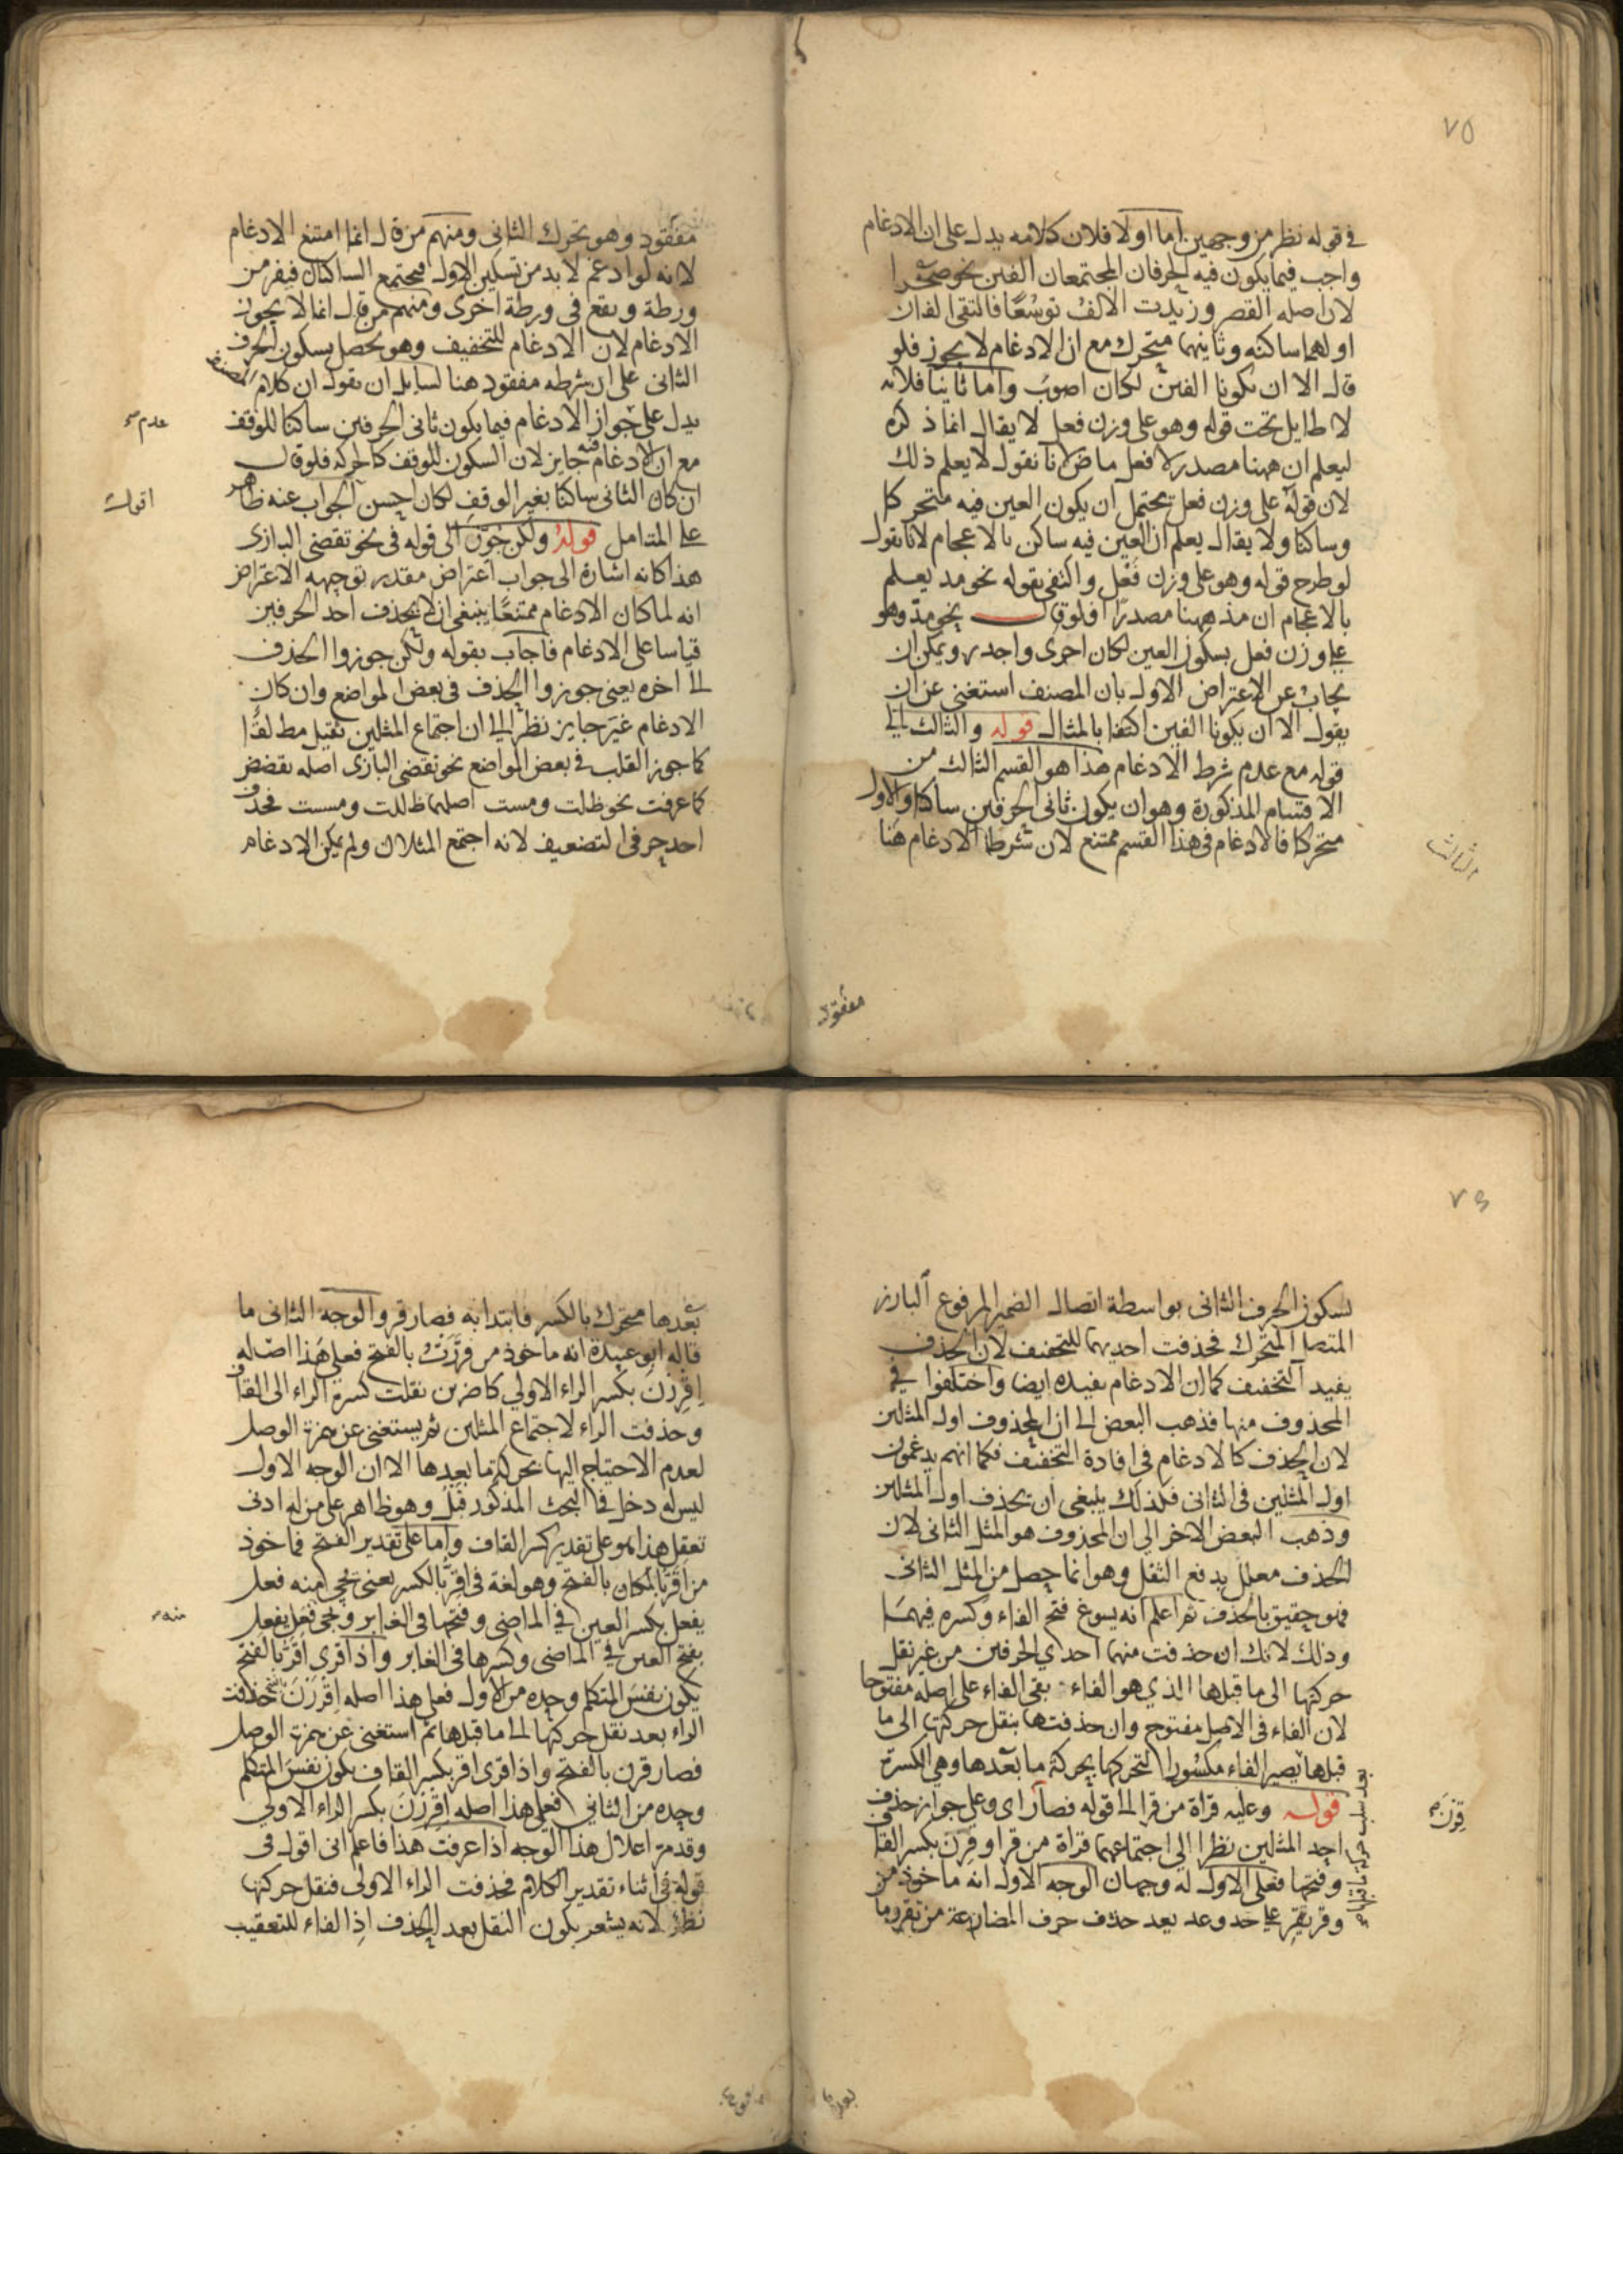 ٧٥
في قوله نظر من وجهين اما اولا فلان كلامه يدل على ان الادغام
واجب فيما يكون فيه الحرفان المجتمعان الفين نحو صحرا
لان اصله القصر وزيدت الالف توسعا فالتقى الفان
اولهما ساكنه وثانيهما متحرك مع ان الادغام لا يجوز فلو
قال الا ان يكونا الفين لكان اصوب واما ثانيا فلانه
لا طايل تحت قوله وهو على وزن فعل لا يقال انما ذكره
ليعلم ان ههنا مصدر لا فعل ماض لانا نقول لا يعلم ذلك
لان قوله على وزن فعل يحتمل ان يكون العين فيه متحركا
وساكنا ولا يقال يعلم ان العين فيه ساكن بالاعجام لانا نقول
لو طرح قوله وهو على وزن فعل واكتفى بقوله نحو مد يعلم
بالاعجام ان مد ههنا مصدرا فلو قال نحو مد وهو
على وزن فعل بسكون العين لكان احرى واجدر ويمكن ان
يجاب عن الاعتراض الاول بان المصنف استغنى عن ان
يقول الا ان يكونا الفين اكتفا بالمثال قوله والثالث الى
قوله مع عدم شرط الادغام هذا هو القسم الثالث من
الاقسام المذكورة وهو ان يكون ثاني الحرفين ساكنا والاول
متحركا فالادغام في هذا القسم ممتنع لان شرط الادغام هنا
الثالث
مفقود
مفقود وهو تحرك الثاني ومنهم من قال انما امتنع الادغام
لانه لو ادغم لا بد من تسكين الاول فيجتمع الساكنان فيفر من
ورطة ويقع في ورطة اخرى ومنهم من قال انما لا يجوز
الادغام لان الادغام للتخفيف وهو يحصل بسكون الحرف
الثاني على ان شرطه مفقود هنا لسايل ان يقول ان كلام المصنف
يدل على جواز الادغام فيما يكون ثاني الحرفين ساكنا للوقف
عدم
مع ان الادغام فيه جايز لان السكون للوقف كالحركة فلو قال
ان كان الثاني ساكنا بغير الوقف لكان احسن الجواب عنه ظاهر
اقول
على المتامل قوله ولكن جوزوا الى قوله في نحو تقضى البازى
هذا كانه اشارة الى جواب اعتراض مقدر توجيهه الاعتراض
انه لما كان الادغام ممتنعا ينبغي ان لا يحذف احد الحرفين
قياسا على الادغام فاجاب بقوله ولكن جوزوا الحذف
الى اخره يعني جوزوا الحذف في بعض المواضع وان كان
الادغام غير جايز نظرا الى ان اجتماع المثلين ثقيل مطلقا
كما جوز القلب في بعض المواضع نحو تقضى البازى اصله تقضض
كما عرفت نحو ظلت ومست اصلهما ظللت ومسست فحذف
احد حرفي التضعيف لانه اجتمع المثلان ولم يمكن الادغام
لسكون الحرف الثاني بواسطة اتصال الضمير المرفوع البارز
المتصل المتحرك فحذفت احديهما للتخفيف لان الحذف
يفيد التخفيف كما ان الادغام يفيده ايضا واختلفوا في
المحذوف منها فذهب البعض الى ان المحذوف اول المثلين
لان الحذف كالادغام في افادة التخفيف فكما انهم يدغمون
اول المثلين في الثاني فكذلك ينبغي ان يحذف اول المثلين
وذهب البعض الاخر الى ان المحذوف هو المثل الثاني لان
الحذف معلل بدفع الثقل وهو انما حصل من المثل الثاني
فهو حقيق بالحذف ثم اعلم انه يسوغ فتح الفاء وكسره فيهما
وذلك لانك ان حذفت منهما احدي الحرفين من غير نقل
حركتها الى ما قبلها الذي هو الفاء بقى الفاء على اصله مفتوحا
لان الفاء في الاصل مفتوح وان حذفتها بنقل حركتها الى ما
قبلها يصير الفاء مكسورا لتحركها بحركة ما بعدها وهي الكسرة
قوله وعليه قراة من قرا الى قوله فصار اى وعلى جواز حذف
قرن
احد المثلين نظرا الى اجتماعهما قراة من قرا وقرن بكسر القاف
وفتحها فعلى الاول له وجهان الوجه الاول انه ماخوذ من
وقر يقر على حد وعد يعد حذف حرف المضارعة من تقر وما
بعدها
بعدها متحرك بالكسر فابتدا به فصار قر والوجه الثاني ما
قاله ابو عبيدة انه ماخوذ من قررت بالفتح فعلى هذا اصله
اقررن بكسر الراء الاولى كاضربن نقلت كسرة الراء الى القاف
وحذفت الراء لاجتماع المثلين ثم يستغنى عن همزة الوصل
لعدم الاحتياج اليها بحركة ما بعدها الا ان الوجه الاول
ليس له دخل في البحث المذكور قبل وهو ظاهر على من له ادنى
تعقل هذا هو على تقدير كسر القاف واما على تقدير الفتح فماخوذ
من اقر بالمكان بالفتح وهو لغة في اقر بالكسر يعني يجي منه فعل
يفعل بكسر العين في الماضي وفتحها في الغابر ويجي فعل يفعل
منه
بفتح العين في الماضي وكسرها في الغابر واذا قرى اقر بالفتح
يكون نفس المتكلم وحده من الاول فعلى هذا اصله اقررن فحذفت
الراء بعد نقل حركتها الى ما قبلها ثم استغنى عن همزة الوصل
فصار قرن بالفتح واذا قرى اقر بكسر القاف يكون نفس المتكلم
وحده من الثاني فعلى هذا اصله اقررن بكسر الراء الاولى
وقد مر اعلال هذا الوجه اذا عرفت هذا فاعلم انى اقول في
قوله في اثناء تقدير الكلام فحذفت الراء الاولى فنقل حركتها
نظر لانه يشعر بكون النقل بعد الحذف اذ الفاء للتعقيب